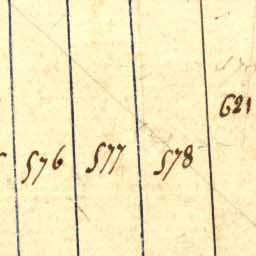 621
576 577 578